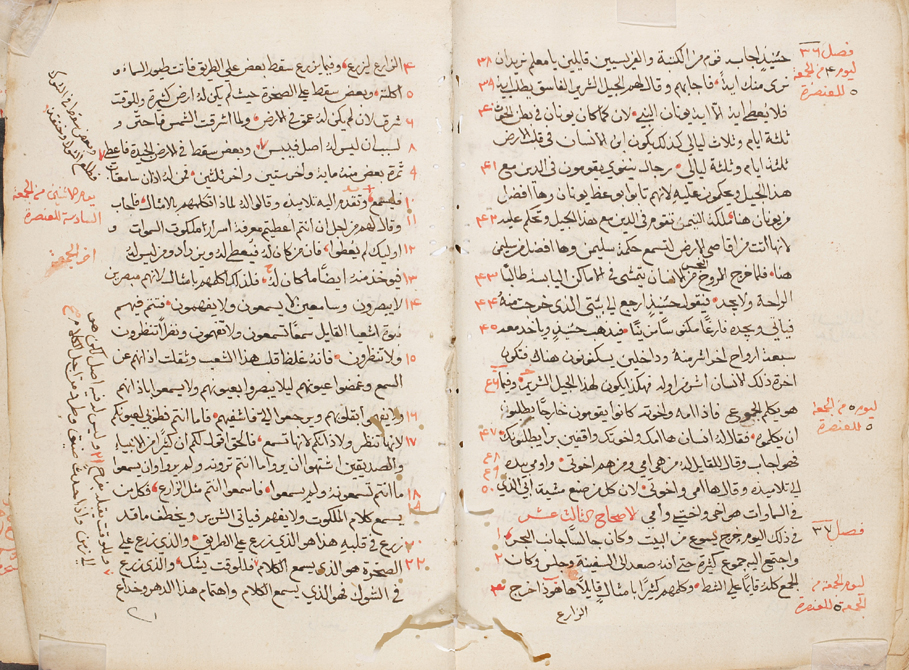 فصل ٣٦
ليوم ٤ من الجمعة
٥ للعنصرة
حينئذ اجاب قوم من الكتبة والفريسيين قايلين يا معلم نريد ان ٣٨
نرى منك اية فاجابهم وقال لهم الجيل الشرير الفاسق يطلب اية ٣٩
فلا يعطى اية الا اية يونان النبي لان كما كان يونان في بطن الحوت ٤٠
ثلثة ايام وثلاث ليالي كذلك يكون ابن الانسان في قلب الارض
ثلثة ايام وثلثة ليالي رجال نينوى يقومون في الدين مع ٤١
هذا الجيل ويحكمون عليه لانهم تابوا بوعظ يونان وهاهنا افضل
من يونان هنا ملكة التيمن تقوم في الدين مع هذا الجيل وتحكم عليه ٤٢
لانها اتت من اقاصي الارض لتسمع حكمة سليمن وها افضل من سليمن
هنا فلما خرج الروح النجس من الانسان يتمشى في اماكن اليابسة طالبا ٤٣
الراحة ولا يجد فيقول حينئذ ارجع الى بيتي الذي خرجت منه ٤٤
فياتي ويجده فارغا مكنوسا مزينا فيذهب حينئذ وياخذ معه ٤٥
سبعة ارواح اخر اشر منه وداخلين يسكنون هناك فتكون
اخرة ذلك الانسان اشر من اوله فهكذا يكون لهذا الجيل الشرير وفيما ٤٦
ليوم ٥ من الجمعة
٥ للعنصرة
هو يكلم الجموع فاذا امه واخوته كانوا يقومون خارجا يطلبون
ان يكلموه فقال له انسان ها امك واخوتك واقفين برا يطلبونك ٤٧
فهو اجاب وقال للقايل له من هي امي ومن هم اخوتي واومى بيده ٤٨ ٤٩
الى تلاميذه وقال ها امي واخوتي لان كل من صنع مشية ابي الذي ٥٠
في السماوات هو اخي واختي وامي الاصحاح الثالث عشر
فصل ٣٧
في ذلك اليوم خرج يسوع من البيت وكان جالسا جانب البحر ١
واجتمع اليه جموع كثيرة حتى انه صعد الى السفينة وجلس وكان ٢
ليوم الجمعة من
الجمعة ٥ للعنصرة
الجمع كله قايما على الشط وكلمهم كثيرا بامثال قايلا ها هوذا خرج ٣
الزارع
٤ الزارع ليزرع وفيما يزرع سقط بعض على الطريق فاتت طيور السماء و
٥ اكلته وبعض سقط على الصخرة حيث لم يكن له ارض كثيرة وللوقت
٦ شرق لان لم يكن له عمق في الارض ولما اشرقت الشمس فاحتر و
٨ لسبب ان ليس له اصل فيبس ٧ وبعض سقط في الارض الجيدة فاعطى
٩ ثمرة بعض منه ماية واخر ستين واخر ثلثين من له اذان سامعات
١٠ فليسمع وتقدم اليه تلاميذه وقالوا له لماذا تكلمهم بالامثال فاجاب
١١ وقال لهم من اجل ان انتم اعطيتم معرفة اسرار ملكوت السموات و
١٢ اوليك لم يعطوا فان من كان له فيعطى له ويزداد ومن ليس له
١٣ فيوخذ منه ايضا ما كان له فلذلك اكلمهم بامثال لانهم مبصرين
١٤ لا يبصرون وسامعين لا يسمعون ولا يفهمون فتتم فيهم
نبوة اشعيا القايل سمعا تسمعون ولا تفهمون ونظرا تنظرون
١٥ ولا تنظرون فانه غلظ قلب هذا الشعب وثقلت اذانهم عن
السمع وغمضوا عيونهم ليلا يبصروا بعيونهم ولا يسمعوا باذانهم
١٦ ولا يفهموا بقلوبهم ويرجعوا الي فاشفيهم فاما انتم فطوبى لعيونكم
١٧ لانها تنظر ولاذانكم لانها تسمع فالحق اقول لكم ان كثير من الانبياء
والصديقين اشتهوا ان يروا ما انتم ترونه ولم يروا وان يسمعوا
١٨ ما انتم تسمعونه ولم يسمعوا فاسمعوا انتم مثل الزارع فكل من
١٩ يسمع كلام الملكوت ولا يفهم فياتي الشرير ويخطف ما قد
٢٠ زرع في قلبه هذا هو الذي زرع على الطريق والذي زرع على
٢٢ الصخرة هو الذي يسمع الكلام فللوقت يشك والذي زرع
في الشوك فهو الذي يسمع الكلام واهتمام هذا الدهر وخداع
وبعض سقط في الشوك
فطلع الشوك وخنقه
يوم الاثنين من الجمعة
السادسة للعنصرة